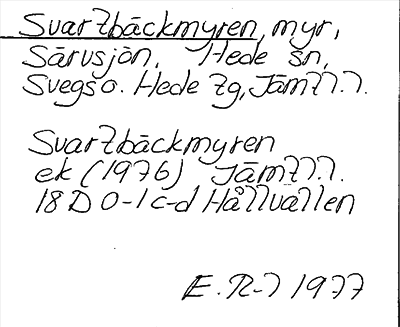 Svartbäckmyren, myr,
Särvsjön, Hede sn,
Svegs o. Hede tg, Jämtl.
Svartbäckmyren
ek (1976) Jämtl.
18 D 0-1 c-d Hållvallen
E. R-l 1977